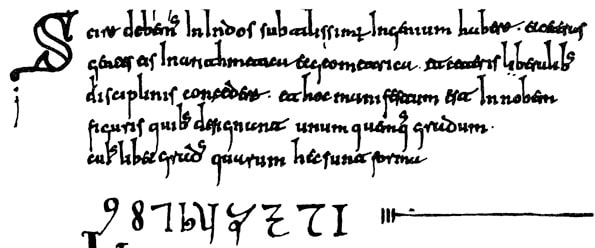 Scire debemꝰ In Indos subtilissimū Ingenium habere. et ceteras
gentes eis In arithmetica et geometrica. et ceteris liberalibꝰ
disciplinis concedere. et hoc manifestum est In nobem
figuris quibꝰ designant unum quemqꝰ gradum.
cuiꝰlibet gradꝰ quarum hec sunt forma
9 8 7 6 5 4 3 2 1